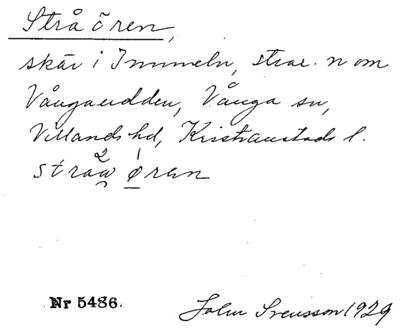 Strå ören,
skär i Immeln, strax n om
Vångaudden, Vånga sn,
Villands hd, Kristianstads l.
stråw øren
Nr 5486.
John Svensson 1929